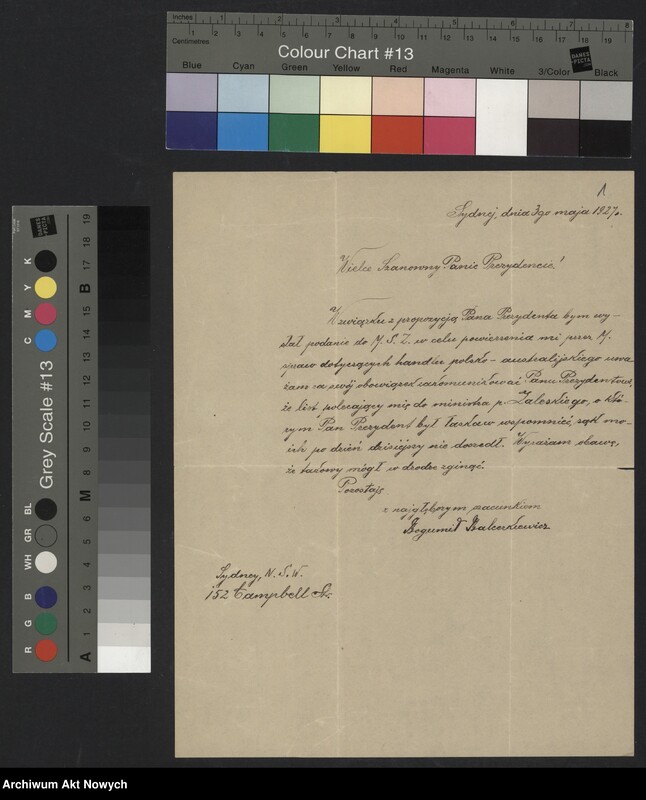 Inches 1 2 3 4 5 6 7 8
Centimetres 1 2 3 4 5 6 7 8 9 10 11 12 13 14 15 16 17 18 19
Colour Chart #13
Blue Cyan Green Yellow Red Magenta White 3/Color Black
DANES
PICTA
1
Sydnej, dnia 3go maja 1927r.
Wielce Szanowny Panie Prezydencie!
W związku z propozycją Pana Prezydenta bym wy-
słał podanie do M.S.Z. w celu powierzenia mi przez M.
spraw dotyczących handlu polsko-australijskiego uwa
żam za swój obowiązek zakomunikować Panu Prezydentowi,
że list polecający mię do ministra p. Zaleskiego, o któ-
rym Pan Prezydent był łaskaw wspomnieć, rąk mo-
ich po dzień dzisiejszy nie doszedł. Wyrażam obawę,
że takowy mógł w drodze zginąć.
Pozostaję
z najgłębszym szacunkiem
Bogumił
Sydney, N.S.W.
152 Campbell St.
Grey Scale #13
DANES
PICTA
C M Y K
R G B WH GR BL
A 1 2 3 4 5 6 M 8 9 10 11 12 13 14 15 B 17 18 19
Archiwum Akt Nowych